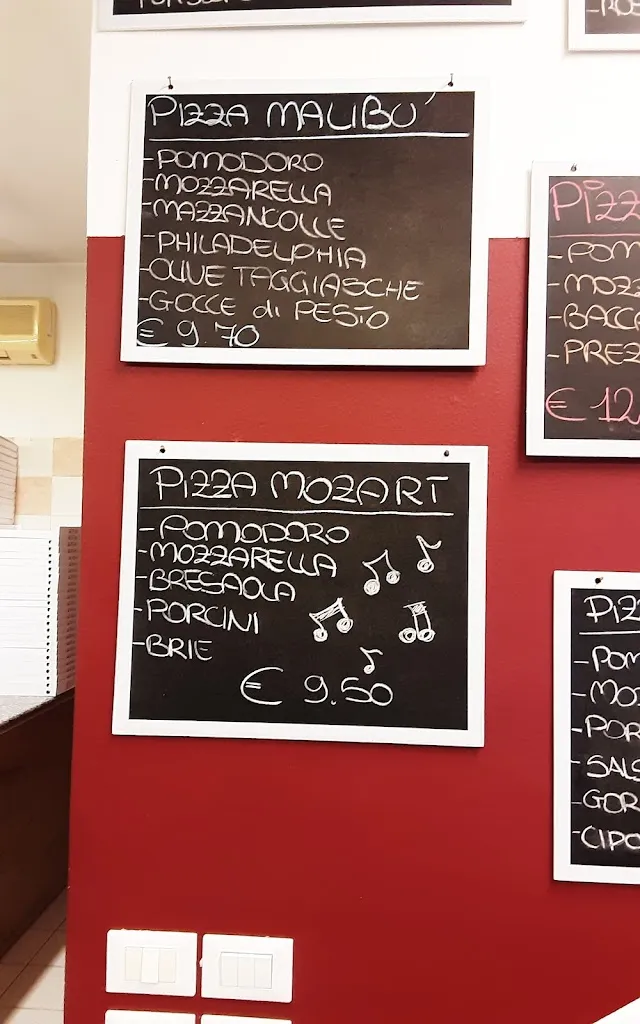 PIZZA MALIBU'
-POMODORO
-MOZZARELLA
-MAZZANCOLLE
-PHILADELPHIA
-OLIVE TAGGIASCHE
-GOCCE di PESTO
€ 9.70
PIZZA MOZART
-POMODORO
-MOZZARELLA
-BRESAOLA
-PORCINI
-BRIE
€ 9.50
PIZZ
-POM
-MOZZ
-BACCA
-PREZ
€ 12
PIZ
-POM
-MOZ
-POR
-SALS
-GOR
-CIPO